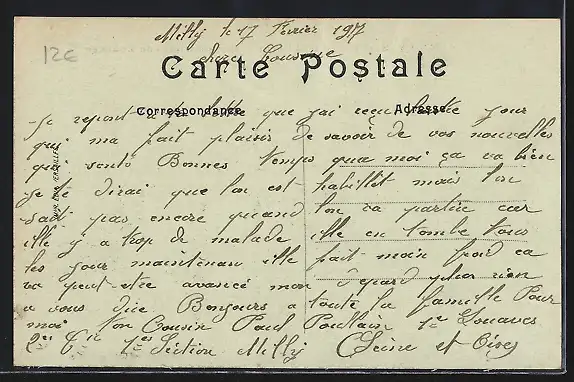 Milly le 17 Février 197
12€
Chere Cousine
Carte Postale
Correspondance
Adresse
Je repont a ta lettre que jai reçu cette jour
qui ma fait plaisir de savoir de vos nouvelles
qui sont Bonnes temps qua moi ça va bien
je te dirai que lon est habillet mais lon
sait pas encore quand lon va partire car
ille y a trop de malade ille en tombe tous
les jour maintenan ille fait moin froid ca
va peut-etre avancé mon depard plus rien
a vous dire Bonjours a toute la famille Pour
moi ton Cousin Paul Poullain 1e Zouaves
2em Cie 1er Section Milly (Seine et Oise)